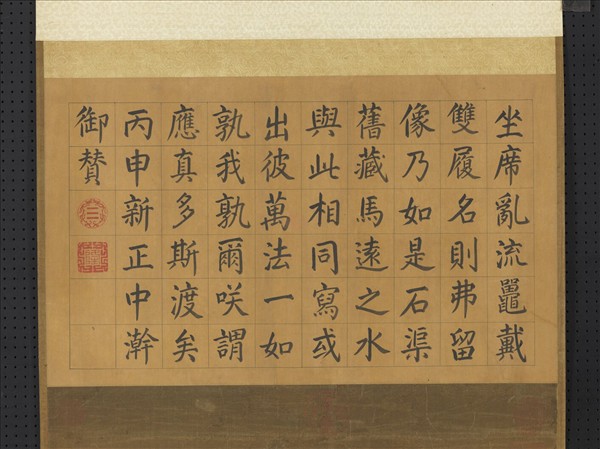 坐席亂流鼉戴
雙履名則弗留
像乃如是石渠
舊藏馬遠之水
與此相同寫或
出彼萬法一如
孰我孰爾咲謂
應真多斯渡矣
丙申新正中澣
御贊